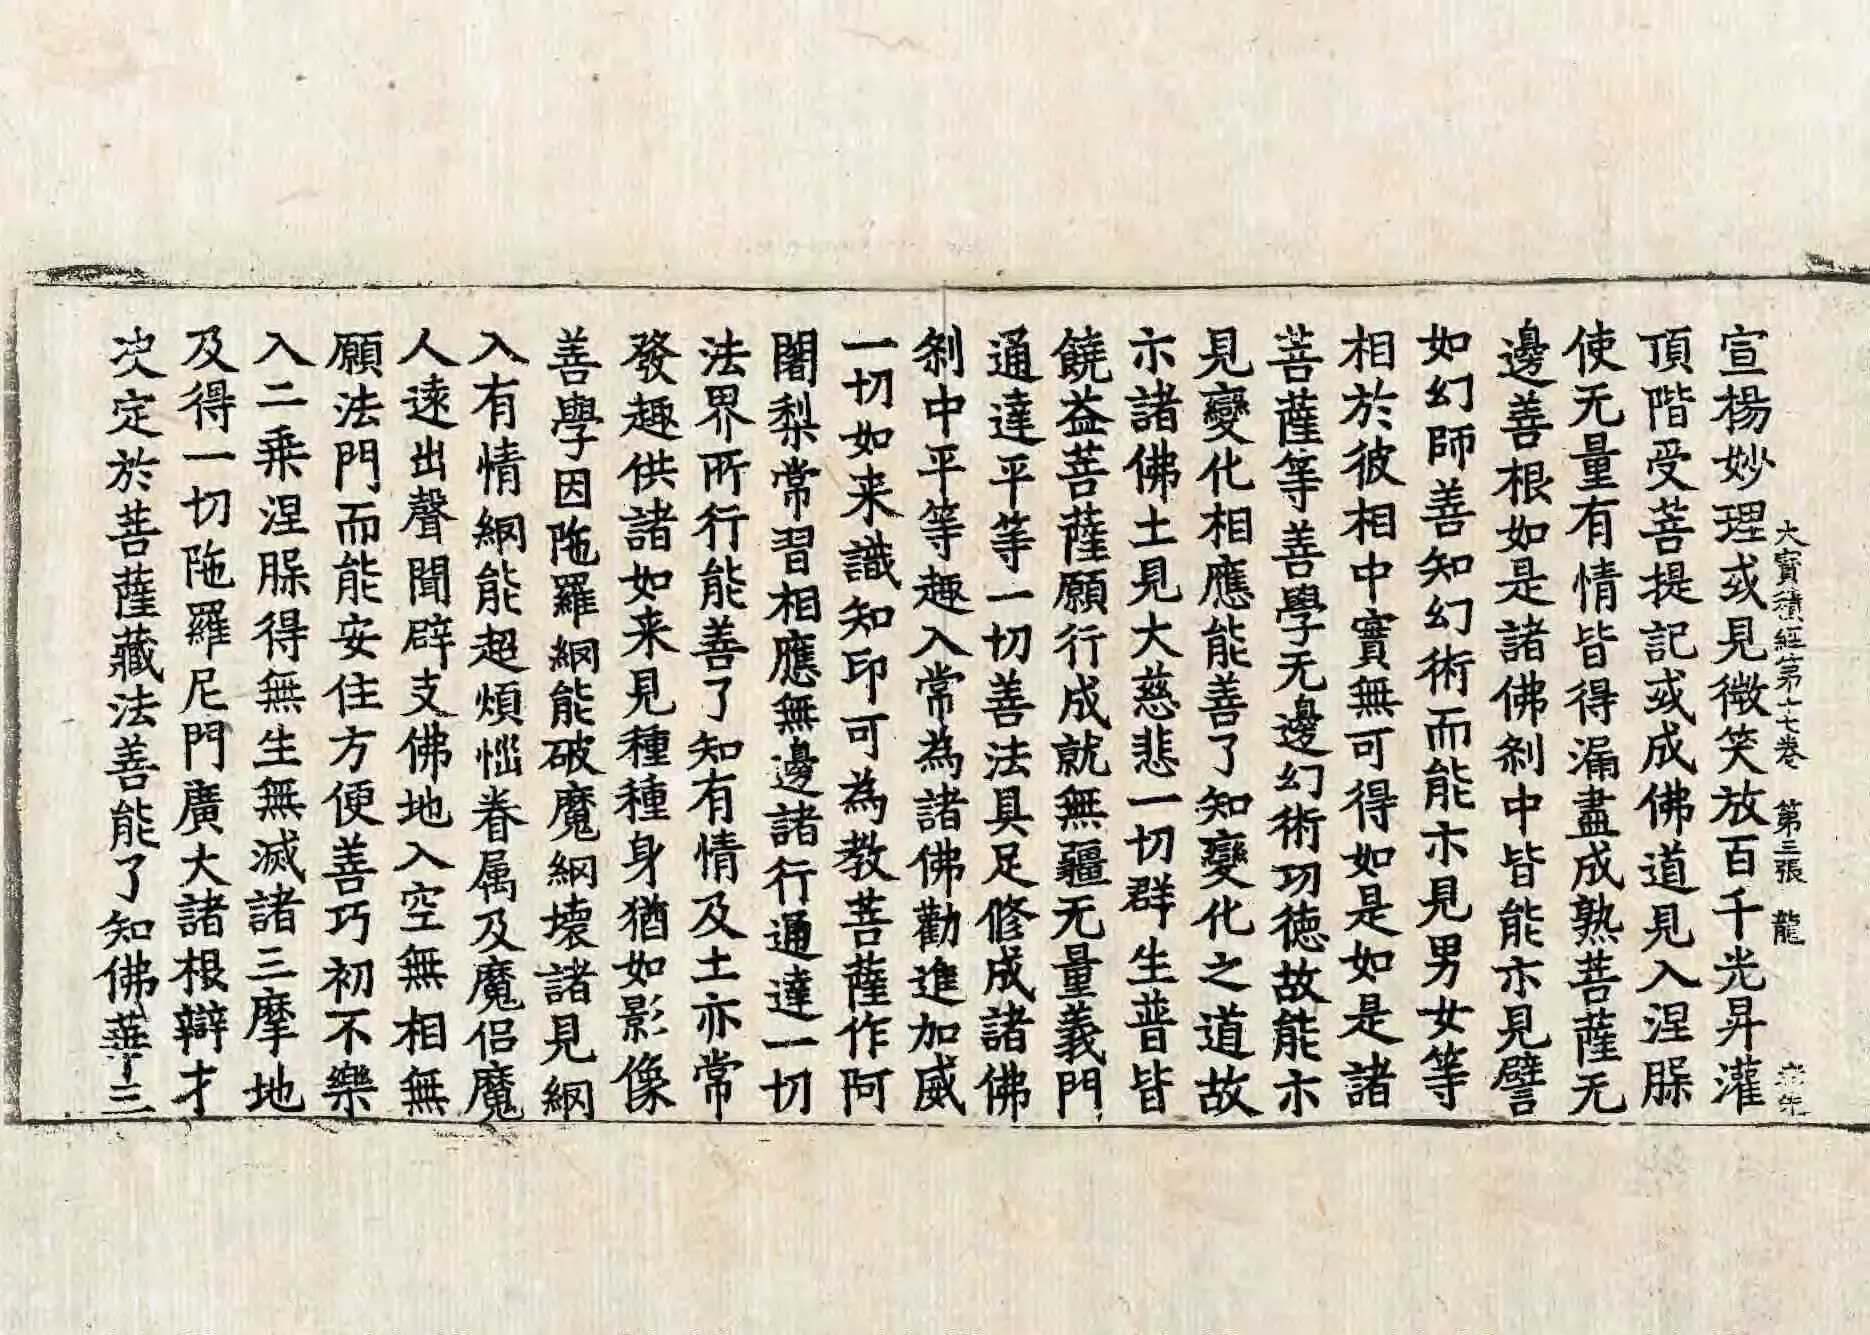 大寶積經第十七卷　第三張　龍
宣楊妙理或見微笑放百千光昇灌
頂階受菩提記或成佛道見入涅脲
使无量有情皆得漏盡成熟菩薩无
邊善根如是諸佛刹中皆能示見譬
如幻師善知幻術而能示見男女等
相於彼相中實無可得如是如是諸
菩薩等善學无邊幻術㓛德故能示
見變化相應能善了知變化之道故
示諸佛土見大慈悲一切群生普皆
饒益菩薩願行成就無疆无量義門
通達平等一切善法具足修成諸佛
刹中平等趣入常為諸佛勸進加威
一切如来識知印可為教菩薩作阿
闍梨常習相應無邊諸行通達一切
法界所行能善了知有情及土亦常
發趣供諸如来見種種身猶如影像
善學因陁羅網能破魔網壞諸見網
入有情網能超煩惱眷属及魔侣魔
人逺出聲聞辟支佛地入空無相無
願法門而能安住方便善巧初不樂
入二乘涅脲得無生無滅諸三摩地
及得一切陁羅尼門廣大諸根辯才
决定於菩薩藏法善能了知佛華三